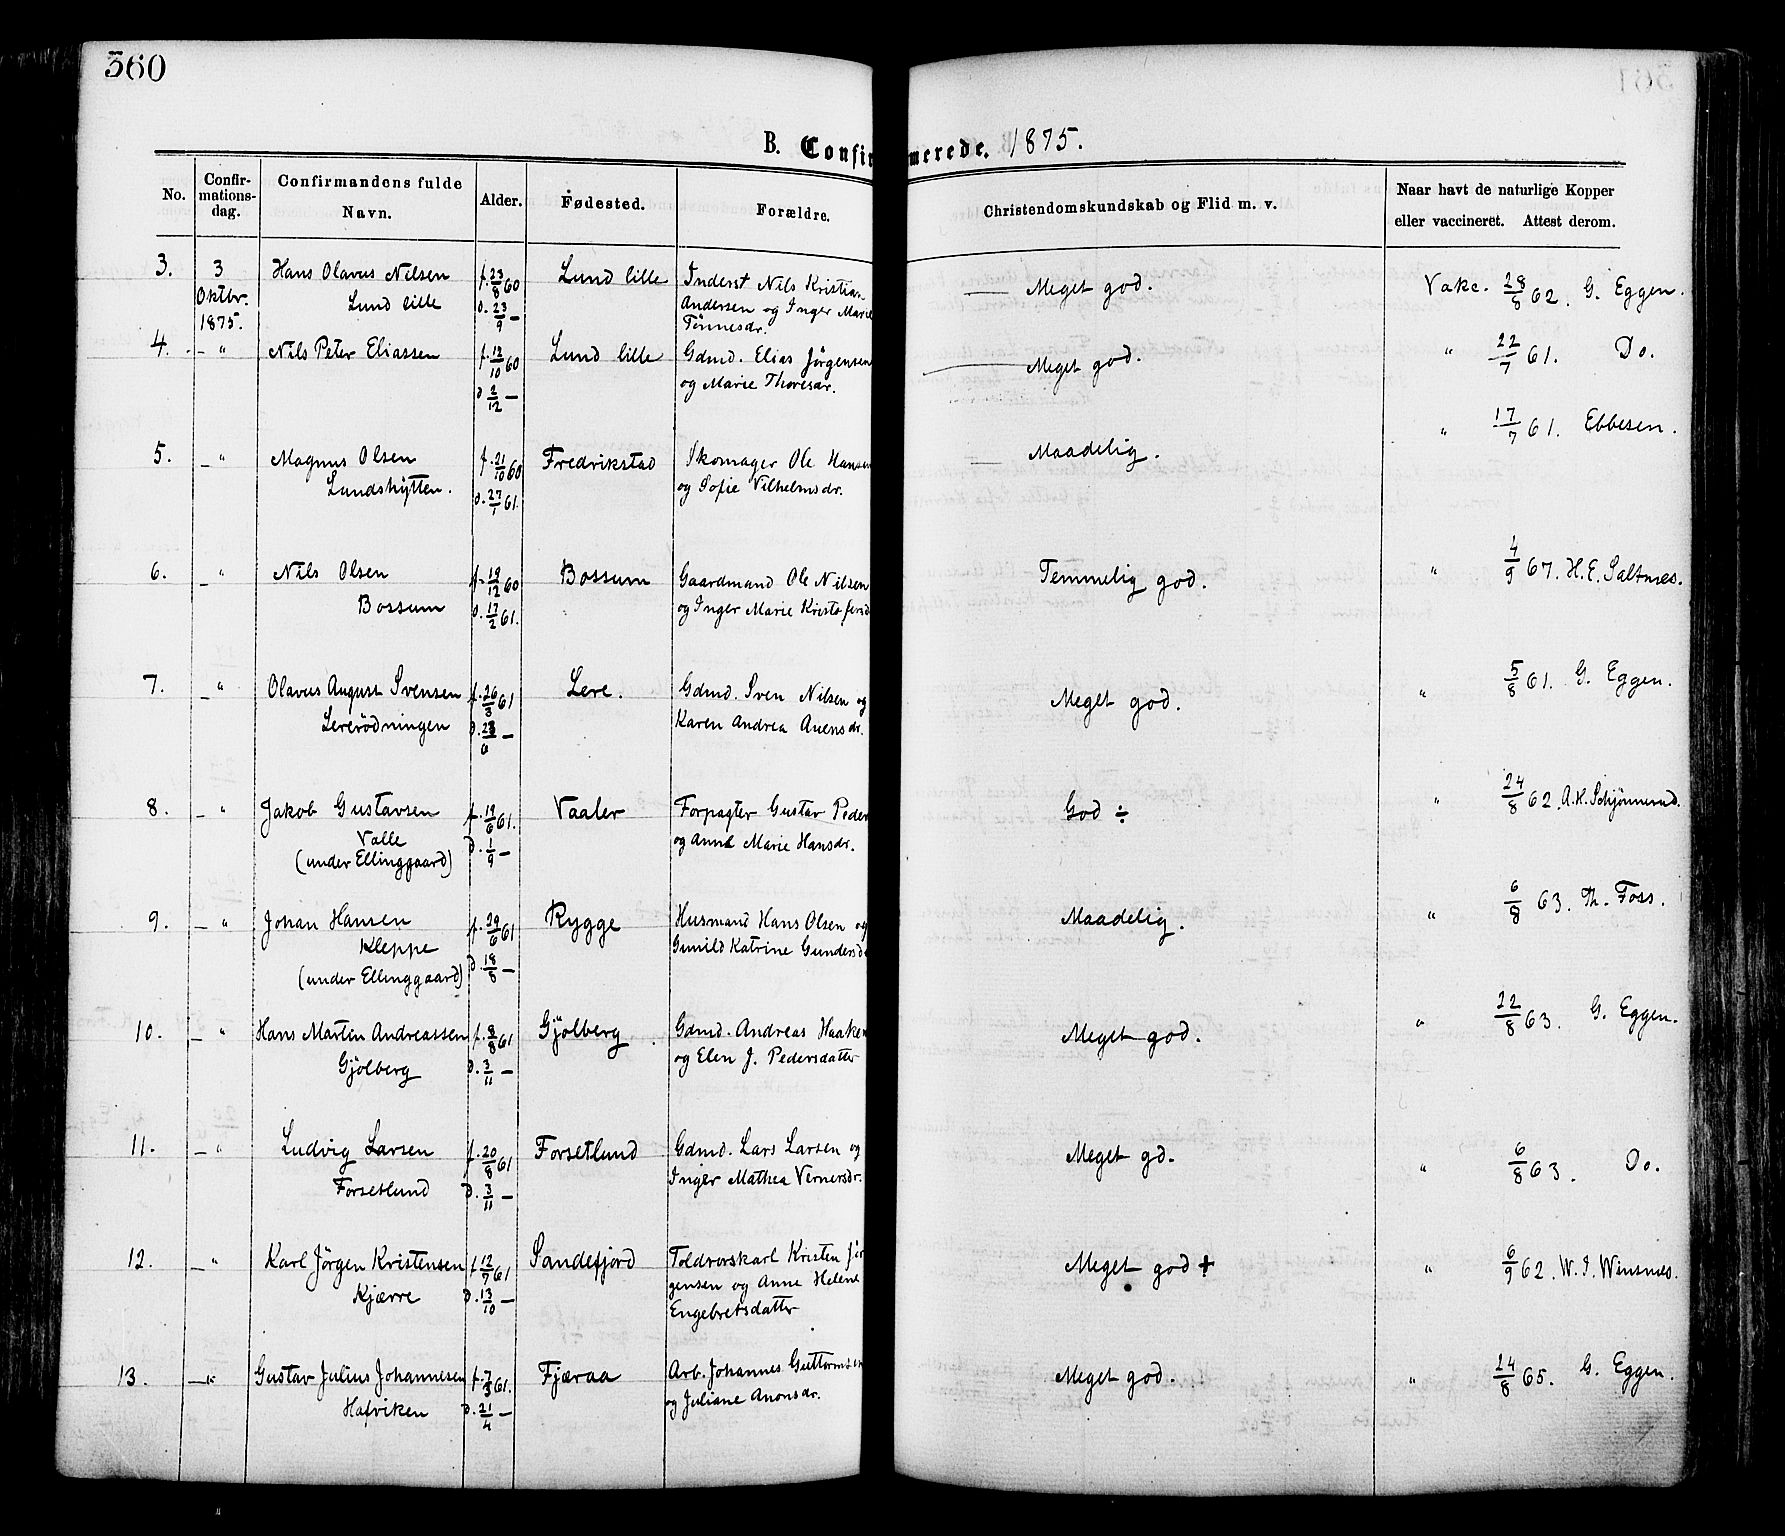 360
B. Confirmerede. 1875.
No.
Confir-
mations-
dag.
Confirmandens fulde
Navn.
Alder.
Fødested.
Forældre.
Christendomskundskab og Flid m. v.
Naar havt de naturlige Kopper
eller vaccineret. Attest derom.
3. 3 Hans Olavus Nilsen f. 23/8 60 Lund lille Inderst Nils Kristian — Meget god. Vakc. 28/8 62. G. Eggen.
Oktbr. Lund lille d. 23/9 — Andersen og Inger Marie
1875. Tönnesdr.
4. — " Nils Peter Eliassen f. 12/10 60 Lund lille Gdmd. Elias Jörgensen — Meget god. " 22/7 61. Do.
d. 2/12 — og Marie Thoresdr.
5. — " Magnus Olsen f. 21/10 60 Fredrikstad Skomager Ole Hansen — Maadelig. " 17/7 61. Ebbesen.
Lundshytten. d. 27/1 61. og Sofie Vilhelmsdr.
6. — " Nils Olsen f. 19/12 60 Bossum Gaardmand Ole Nilsen Temmelig god. " 4/9 67. H. E. Saltnes.
Bossum d. 17/2 61. og Inger Marie Kristofersd
7. — " Olavus August Svensen f. 26/3 61 Lere. Gdmd. Sven Nilsen og Meget god. " 5/8 61. G. Eggen.
Lererödningen d. 23/6 — Karen Andrea Auensdr.
8. — " Jakob Gustavsen f. 19/6 61. Vaaler Forpagter Gustav Peders God ÷ " 24/8 62. A. H. Schjönnerud.
Valle d. 1/9 — og Anne Marie Hansdr.
(under Ellinggaard)
9. — " Johan Hansen f. 29/6 61 Rygge Husmand Hans Olsen og Maadelig. " 6/8 63. Th. Foss.
Kleppe d. 18/8 — Gunild Katrine Gundersd
(under Ellinggaard)
10. — " Hans Martin Andreassen f. 8/8 61 Gjölberg Gdmd. Andreas Haaken Meget god. " 22/8 63. G. Eggen.
Gjölberg d. 3/11 — og Elen J. Pedersdatter
11. — " Ludvig Larsen f. 20/8 61 Forsetlund Gdmd. Lars Larsen og Meget gd. " 6/8 63. Do.
Forsetlund d. 3/11 — Inger Mathea Vernersdr.
12. — " Karl Jörgen Kristensen f. 12/7 61 Sandefjord Toldrorskarl Kristen Jör Meget god + " 6/9 62. W. J. Winsnes.
Kjærre d. 13/10 — gensen og Anne Helene
Engebretsdatter
13. — " Gustav Julius Johannesen f. 7/3 61. Fjæraa Arb. Johannes Guttormsen Meget god. " 14/8 65. G. Eggen.
Hafviken d. 21/4 — og Juliane Aronsdr.